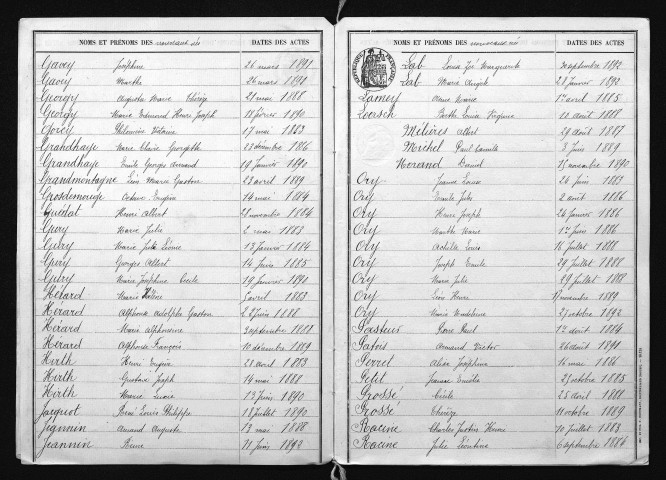 NOMS ET PRÉNOMS DES nouveaux nés DATES DES ACTES
Gavey Joséphine 26 mars 1891
Gavey Marthe 26 mars 1891
Georgy Auguste Marie Thérèse 21 mai 1888
Georgy Marie Edmond Henri Joseph 18 février 1890
Philomène 17 mai 1883
Grandhaye Marie Claire Georgette 23 décembre 1886
Grandhaye Emile Georges Armand 19 janvier 1890
Grandmontagne Léon Marie Gaston 23 avril 1889
Grosdemouge Octave Eugène 14 mai 1884
Guénat Henri Albert 21 novembre 1884
Gury Marie Julie 2 mai 1883
Gury Marie Julie Léonie 13 janvier 1884
Gury Georges Albert 14 juin 1885
Gury Marie Joséphine Cécile 19 janvier 1891
Hélard Marie avril 1883
Hérard Alphonse Adolphe Gaston 28 juin 1888
Hérard Marie Alphonsine 3 septembre 1888
Hérard Alphonse François 10 décembre 1889
Hirth Henri Eugène 28 avril 1883
Hirth Gustave Joseph 14 mai 1888
Hirth Marie 13 juin 1890
Jacquot René Louis Philippe 18 juillet 1890
Jeannin Armand Auguste 13 mai 1888
Jeannin 11 juin 1892
NOMS ET PRÉNOMS DES nouveaux nés DATES DES ACTES
Lab Louis Marguerite septembre 1892
Lab Marie Angèle 21 janvier 1892
Lamey Marie 1er avril 1885
Loersch Berthe Louise Virginie 10 août 1888
Mélières Albert 29 août 1887
Michel Paul Camille 8 juin 1889
Morand Daniel 15 novembre 1890
Ory Jeanne Louise 26 juin 1883
Ory Emile Jules 2 août 1886
Ory Henri Joseph 26 janvier 1886
Ory Marthe Marie 1er juin 1886
Ory Achille Louis 16 juillet 1888
Ory Joseph Emile 29 juillet 1888
Ory Marie Julie 29 juillet 1888
Ory Léon Henri novembre 1889
Ory Marie Madeleine 27 octobre 1892
Pasteur Paul 1er août 1884
Patois Armand Victor 26 août 1891
Perrel Alice Joséphine 16 mai 1886
Petit Jeanne Emélie 25 octobre 1885
Grossé Cécile 25 avril 1881
Grosse Thérèse 11 octobre 1889
Racine Charles Justin Henri 10 juillet 1883
Racine Julie Léontine 6 septembre 1884